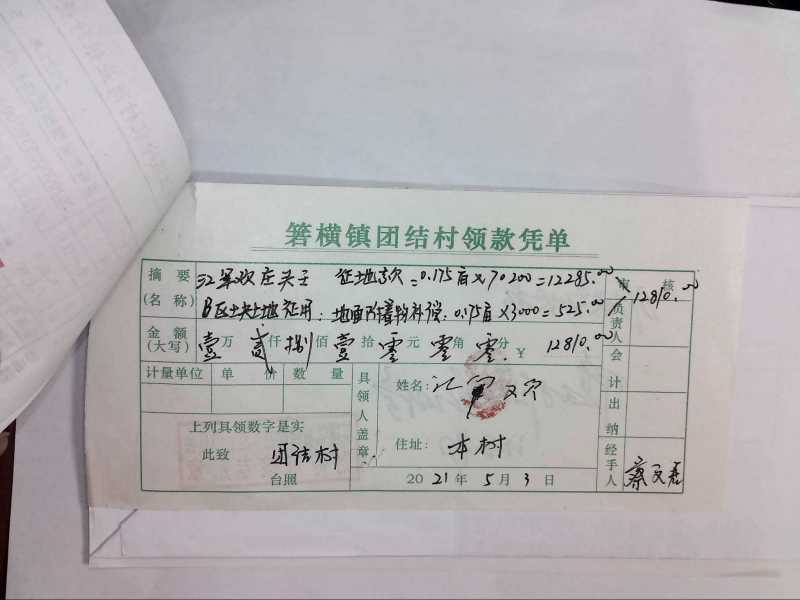 箬横镇团结村领款凭单
摘要 征地款=0.175亩×70200=12285.00
(名称) B区土地征用: 地面附着物补偿:0.175亩×3000=525.00 } 12810.00
审核
金额 壹万贰仟捌佰壹拾零元零角零分 ¥ 12810.00
(大写)
负责人
计量单位 单价 数量
具领人盖章
姓名:
会计
上列具领数字是实
此致 团结村
台照
住址: 本村
出纳
2021年5月3日
经手人 蔡